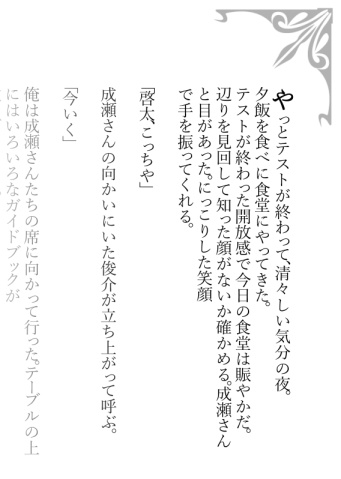 やっとテストが終わって、清々しい気分の夜。
夕飯を食べに食堂にやってきた。
テストが終わった開放感で今日の食堂は賑やかだ。
辺りを見回して知った顔がないか確かめる。成瀬さん
と目があった。にっこりした笑顔
で手を振ってくれる。
「啓太、こっちや」
成瀬さんの向かいにいた俊介が立ち上がって呼ぶ。
「今いく」
俺は成瀬さんたちの席に向かって行った。テーブルの上
にはいろいろなガイドブックが